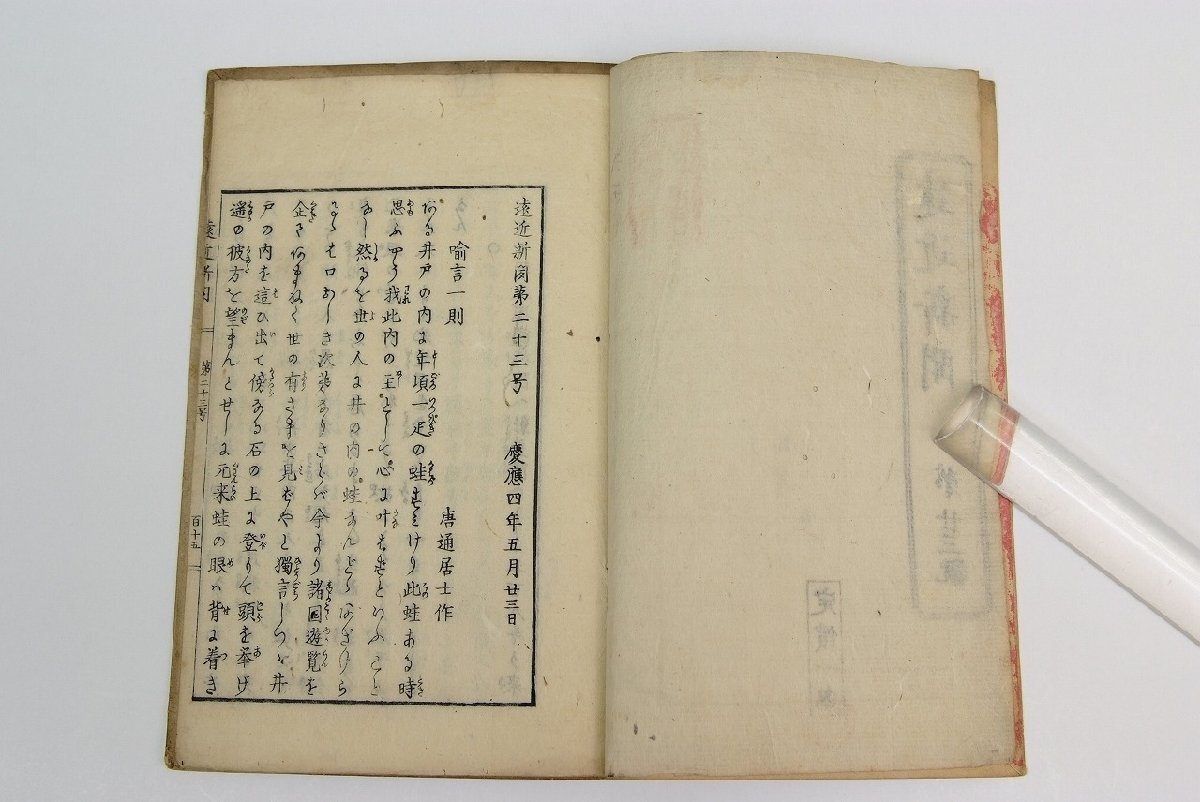 遠近新聞第二十三号 慶應四年五月廿三日
喩言一則 唐通居士作
ある井戸の内に年頃一疋の蛙すみけり此蛙ある時
思ふやう我此内の王として心に叶はずといふこと
なし然るを世の人に井の内の蛙なんどゝあざけら
るゝは口おしき次第なりさらば今より諸国遊覧を
企てあまねく世の有さまを見ばやと獨言しつゝ井
戸の内を這ひ出て傍なる石の上に登りて頭を挙げ
遥の彼方を望まんとせしに元来蛙の眼ハ背に着き
遠近新聞 第二十三号 百十五